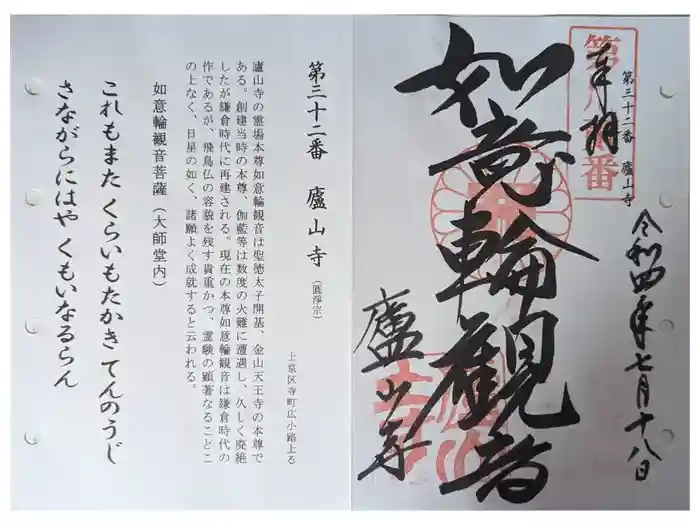 奉拝
第三十二番 廬山寺
令和四年七月十八日
如意輪観音
廬山寺
第三十二番 廬山寺 (圓淨宗)
上京区寺町広小路上る
廬山寺の霊場本尊如意輪観音は聖徳太子開基、金山天王寺の本尊で
ある。創建当時の本尊、伽藍等は数度の火難に遭遇し、久しく廃絶
したが鎌倉時代に再建される。現在の本尊如意輪観音は鎌倉時代の
作であるが、飛鳥仏の容貌を残す貴重かつ、霊験の顕著なることこ
の上なく、日星の如く、諸願よく成就すると云われる。
如意輪観音菩薩(大師堂内)
これもまた くらいもたかき てんのうじ
さながらにはや くもいなるらん